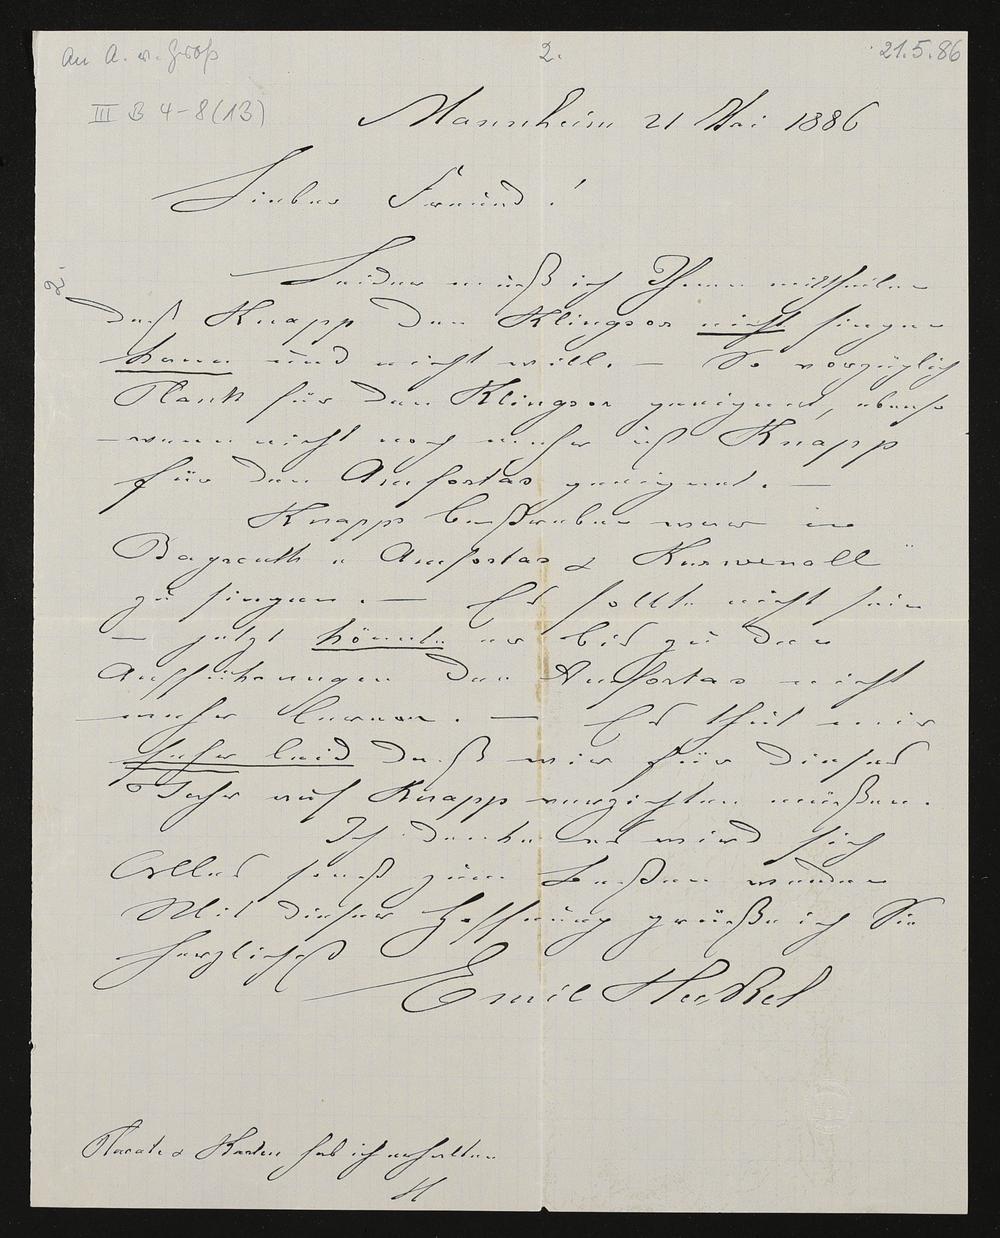 An A. v. Groß
2.
21.5.86
III B 4-8(13)
Mannheim 21 Mai 1886
Lieber Freund!
Leider muß ich Ihnen mittheilen
daß Knapp den Klingsor nicht singen
kann und nicht will. — So vorzüglich
Plank für den Klingsor geeignet, ebenso
– wenn nicht noch mehr ist Knapp
für den Amfortas geeignet. —
Knapp Bestreben war in
Bayreuth " Amfortas & Kurwenall "
zu singen. — Es sollte nicht sein
— jetzt könnte er bis zu den
Aufführungen den Amfortas nicht
mehr lernen. — Es thut mir
sehr leid daß wir für dieses
Jahr auf Knapp verzichten müßen.
Ich denke es wird sich
Alles sonst zum Besten wenden
Mit dieser Hoffnung grüße ich Sie
herzlichst
Emil Heckel
Placate & Karten hab ich erhalten
H